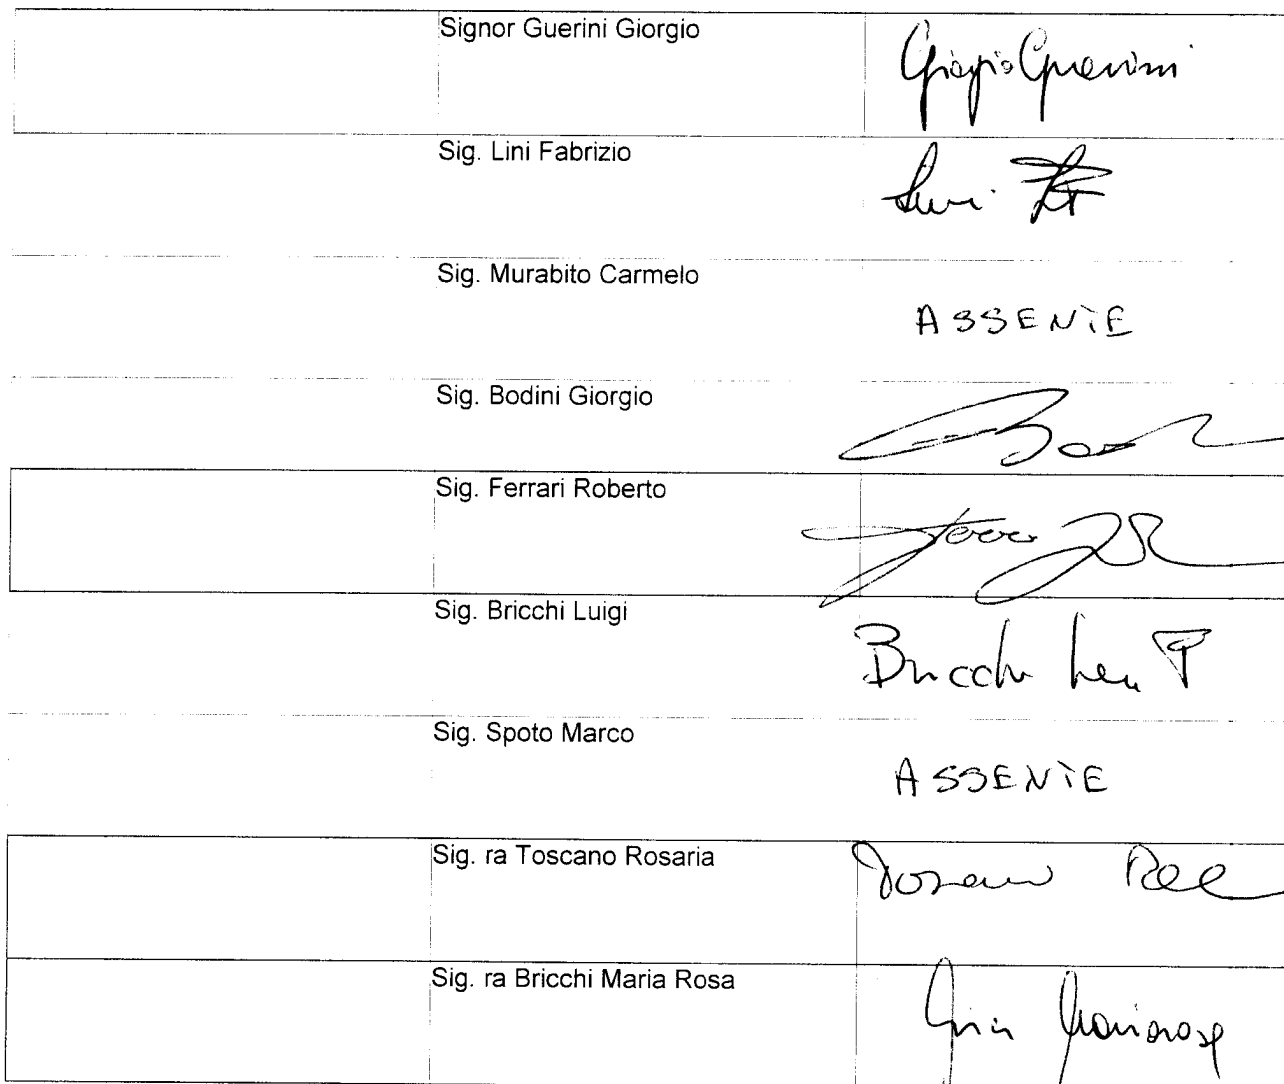 Signor Guerini Giorgio
Giorgio Guerini
Sig. Lini Fabrizio
Sig. Murabito Carmelo
ASSENTE
Sig. Bodini Giorgio
Sig. Ferrari Roberto
Sig. Bricchi Luigi
Bricchi
Sig. Spoto Marco
ASSENTE
Sig. ra Toscano Rosaria
Sig. ra Bricchi Maria Rosa
Mariarosa